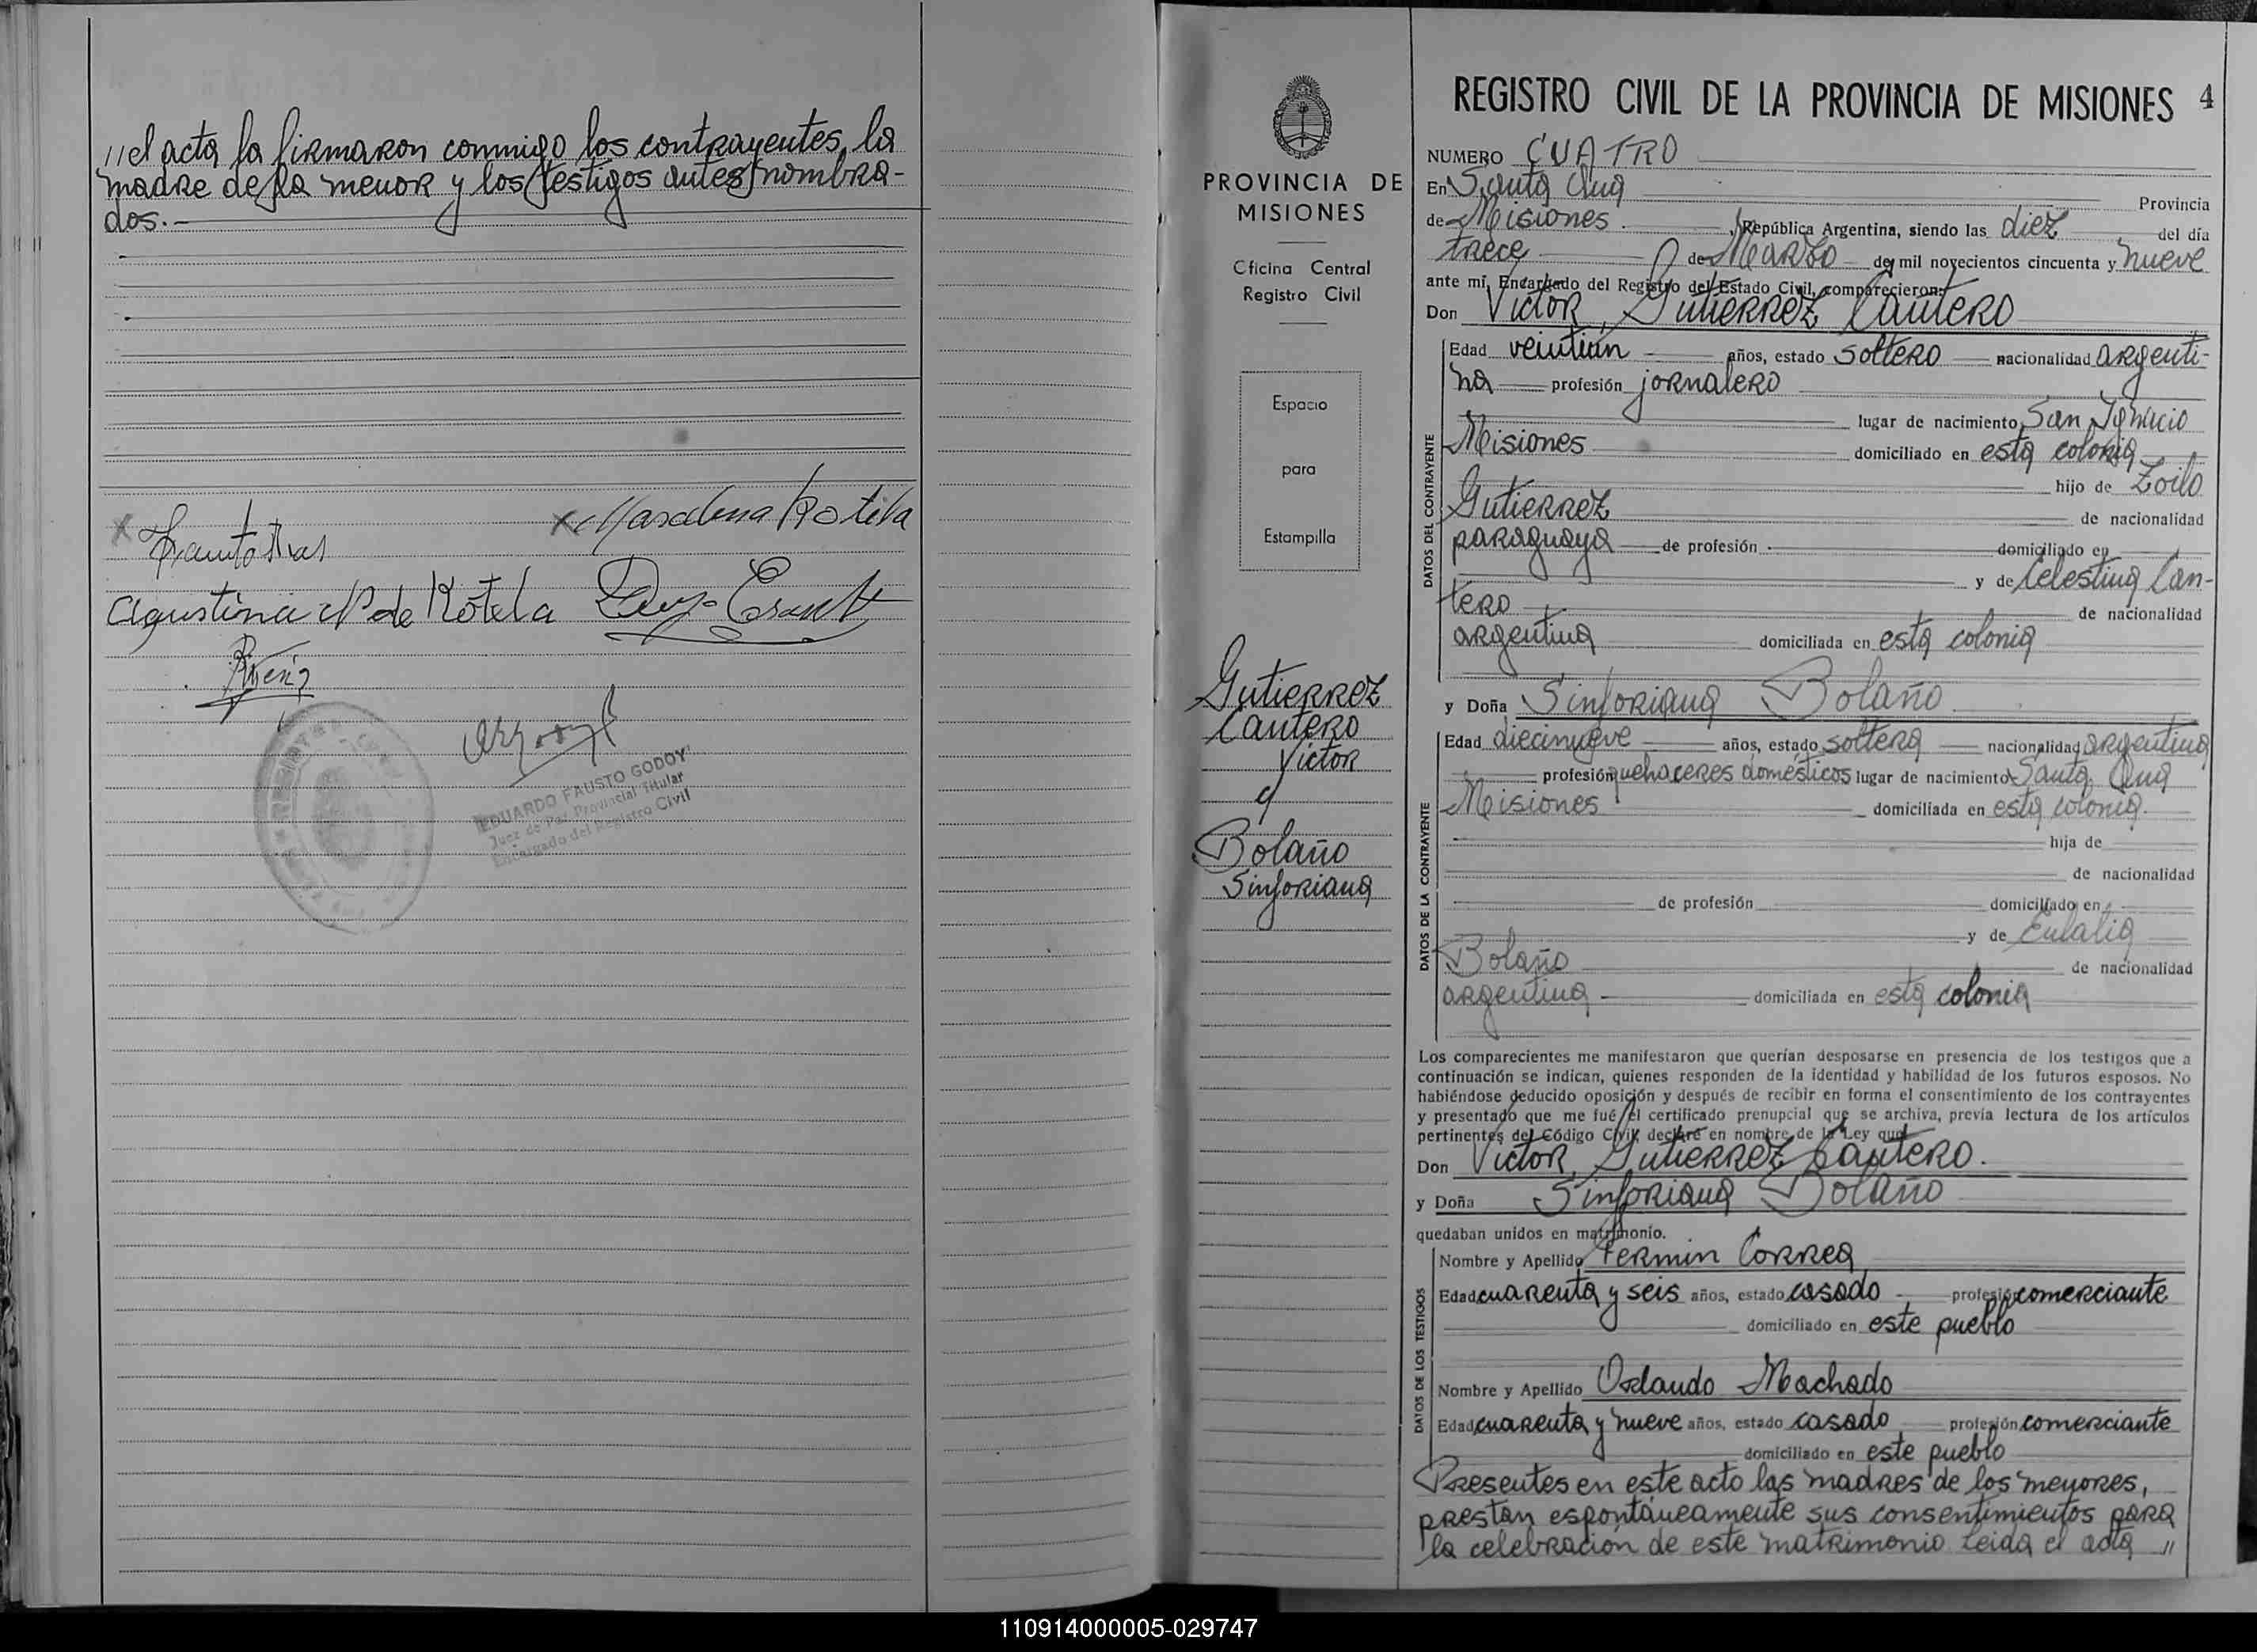 //el acta la firmaron conmigo los contrayentes, la
madre de la menor y los testigos antes nombra-
dos.-
Agustina N de Rotela
EDUARDO FAUSTO GODOY
Juez de Paz Provincial Titular
Encargado del Registro Civil
PROVINCIA DE
MISIONES
Oficina Central
Registro Civil
Espacio
para
Estampilla
Gutierrez
Cantero
Victor
y
Bolaño
Sinforiana
REGISTRO CIVIL DE LA PROVINCIA DE MISIONES 4
NUMERO CUATRO
En Santa Ana Provincia
de Misiones, República Argentina, siendo las diez del día
trece de Marzo de mil novecientos cincuenta y nueve
ante mí, Encargado del Registro del Estado Civil, comparecieron:
Don Victor, Gutierrez Cantero
DATOS DEL CONTRAYENTE
Edad veintiun años, estado soltero nacionalidad argenti-
na profesión jornalero
lugar de nacimiento San Ignacio
Misiones domiciliado en esta colonia
hijo de Zoilo
Gutierrez de nacionalidad
paraguaya de profesión domiciliado en
y de Celestina Can-
tero de nacionalidad
argentina domiciliada en esta colonia
y Doña Sinforiana Bolaño
DATOS DE LA CONTRAYENTE
Edad diecinueve años, estado soltera nacionalidad argentina
profesión quehaceres domésticos lugar de nacimiento Santa Ana
Misiones domiciliada en esta colonia.
hija de
de nacionalidad
de profesión domiciliado en
y de Eulalia
Bolaño de nacionalidad
argentina domiciliada en esta colonia
Los comparecientes me manifestaron que querían desposarse en presencia de los testigos que a
continuación se indican, quienes responden de la identidad y habilidad de los futuros esposos. No
habiéndose deducido oposición y después de recibir en forma el consentimiento de los contrayentes
y presentado que me fué el certificado prenupcial que se archiva, previa lectura de los artículos
pertinentes del Código Civil, declaré en nombre de la Ley que
Don Victor, Gutierrez Cantero.
y Doña Sinforiana Bolaño
quedaban unidos en matrimonio.
DATOS DE LOS TESTIGOS
Nombre y Apellido Fermin Correa
Edad cuarenta y seis años, estado casado profesión comerciante
domiciliado en este pueblo
Nombre y Apellido Orlando Machado
Edad cuarenta y nueve años, estado casado profesión comerciante
domiciliado en este pueblo
Presentes en este acto las madres de los menores,
prestan espontáneamente sus consentimientos para
la celebración de este matrimonio. Leida el acta //
110914000005-029747